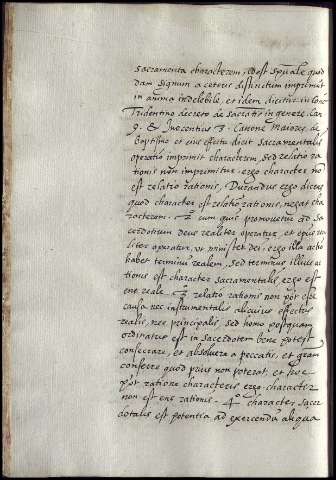 sacramenta characterem, idest spūale quod
dam signum a ceteris distinctum imprimūt
in anima indelebile, et idem dicitur in Conc.
Tridentino decreto de sacratis in genere. Can
9. & Inocentius 3. Canone Maiores de
baptismo et eius effectu dicit sacramentalis
operatio imprimit characterem, sed relatio ra
tionis non imprimitur. ergo character nō
est relatio rationis, Durandus ergo dicens
quod character est relatio rationis, negat cha
racterem. 2º cum quis promouetur ad Sa
cerdotium deus realiter operatur, et ep̄us rea
liter operatur, vt minister dei. ergo illa actio
habet terminū realem, sed terminus illius ac
tionis est character sacramentalis, ergo est
ens reale. 3º relatio rationis non pōt esse
causa nec instrumentalis alicuius effectus
realis, nec principalis, sed homo postquam
ordinatus est in sacerdotem bene potest
consecrare, et absoluere a peccatis, et gram
conferre quod prius non poterat, et hoc
pōt ratione characteris ergo character
non est ens rationis. 4º character sacer
dotalis est potentia ad exercendū aliqua